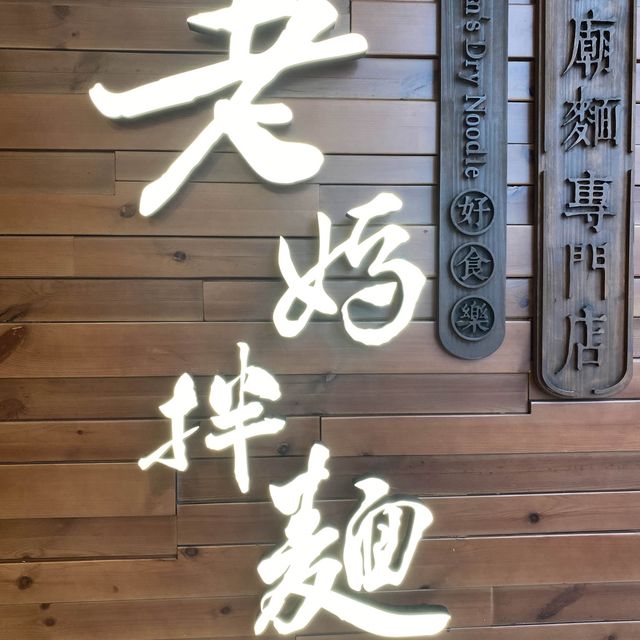 老媽拌麵
n's Dry Noodle 好食樂
廟麵專門店